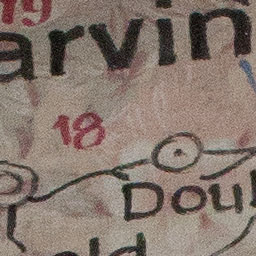 19
arvin
18
Doul
ld